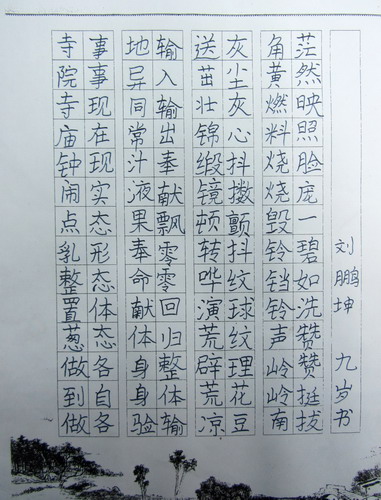 寺院寺庙钟闹点乳整置葱做到做
事事现在现实态形态体态各自各
地异同常汁液果奉命献体身身验
输入输出奉献飘零零回归整体输
送茁壮锦缎镜顿转哗演荒辟荒凉
灰尘灰心抖擞颤抖纹球纹理花豆
角黄燃料烧烧毁铃铛铃声岭岭南
茫然映照脸庞一碧如洗赞赞挺拔
刘鹏坤 九岁书